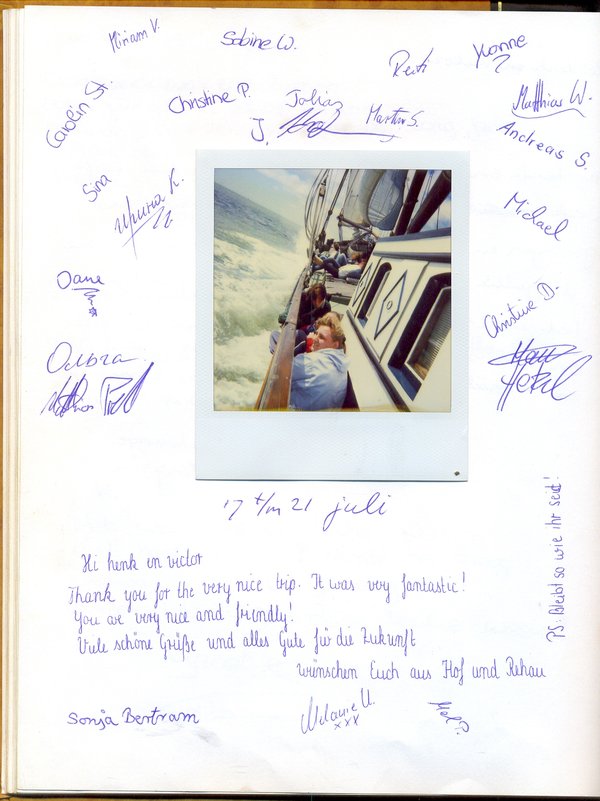 Miriam V.
Sabine W.
Yvonne
Carolin St.
Christine P.
J.
Martin S.
Matthias W.
Andreas S.
Sina
K.
Michael
Christine D.
17 t/m 21 juli
Hi henk en victor
Thank you for the very nice trip. It was very fantastic!
You are very nice and friendly!
Viele schöne Grüße und alles Gute für die Zukunft
wünschen Euch aus Hof und Rehau
PS: Bleibt so wie ihr seid!
Sonja Bertram
Melanie U.
xxx